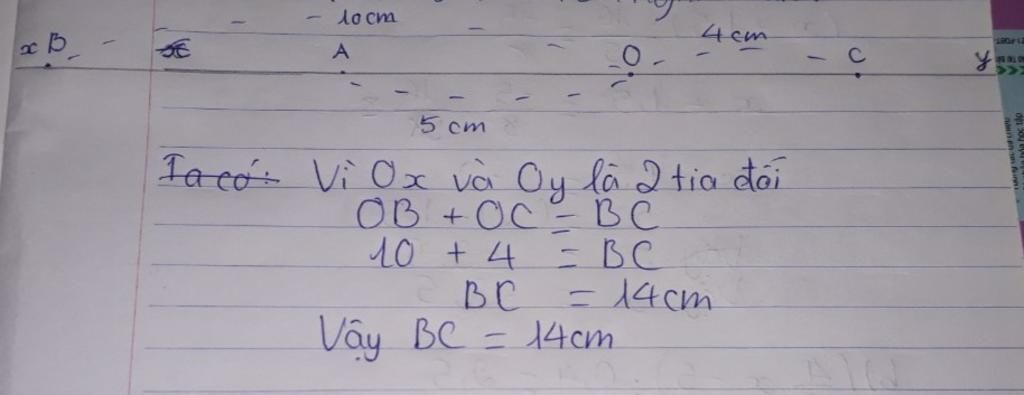 10cm
4cm
x B A O C y
5 cm
Ta có: Vì Ox và Oy là 2 tia đối
OB + OC = BC
10 + 4 = BC
BC = 14cm
Vậy BC = 14cm